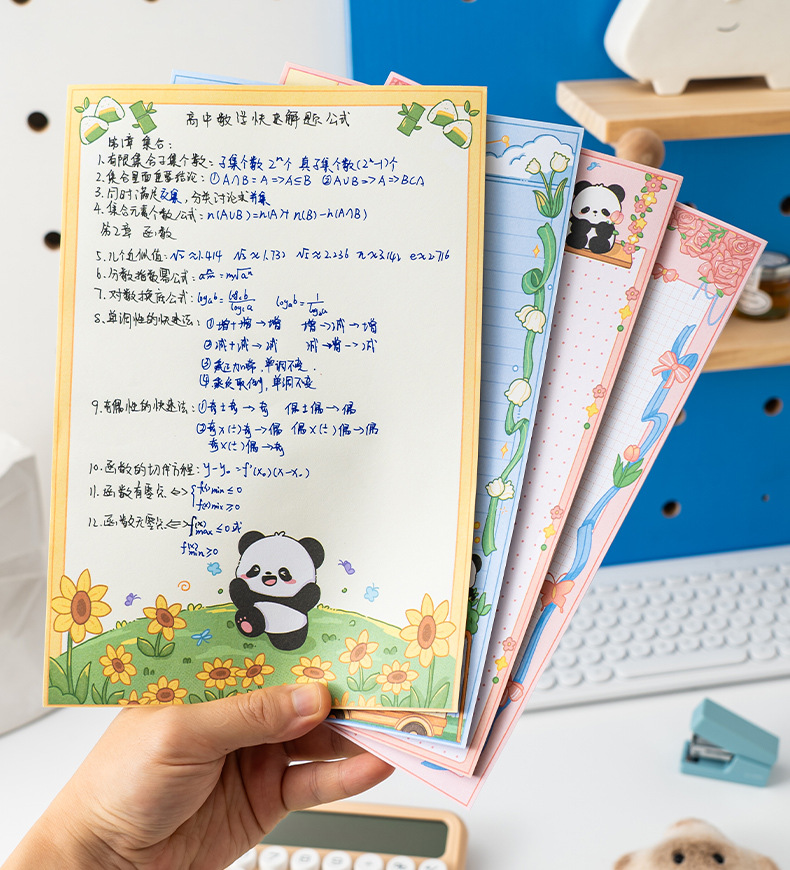 高中数学快速解题公式
第1章 集合:
1.有限集合子集个数:子集个数 2ⁿ个 真子集个数(2ⁿ-1)个
2.集合里面重要结论:①A∩B=A=>A⊆B ②A∪B=>A=>BCA
3.同时满足求交集,分类讨论求并集
4.集合元素个数公式:n(A∪B)=n(A)+n(B)-n(A∩B)
第2章 函数
5.几个近似值:√2≈1.414 √3≈1.732 √5≈2.236 π≈3.142 e≈2.716
6.分数指数幂公式:
7.对数换底公式:log_a b = log_c b / log_c a log_a b = 1 / log_b a
8.单调性的快速法:①增+增→增 增->减→增
②减+减→减 减→增->减
③ 单调不变.
④ 单调不变
9.奇偶性的快速法:①奇±奇→奇 偶±偶→偶
②奇×(÷)奇→偶 偶×(÷)偶→偶
奇×(÷)偶→奇
10.函数的切线方程:y-y₀=f'(x₀)(x-x₀)
11.函数有零点<=>{f(x)min≤0
f(x)max≥0
12.函数无零点<=>f(x)max≤0或
f(x)min≥0